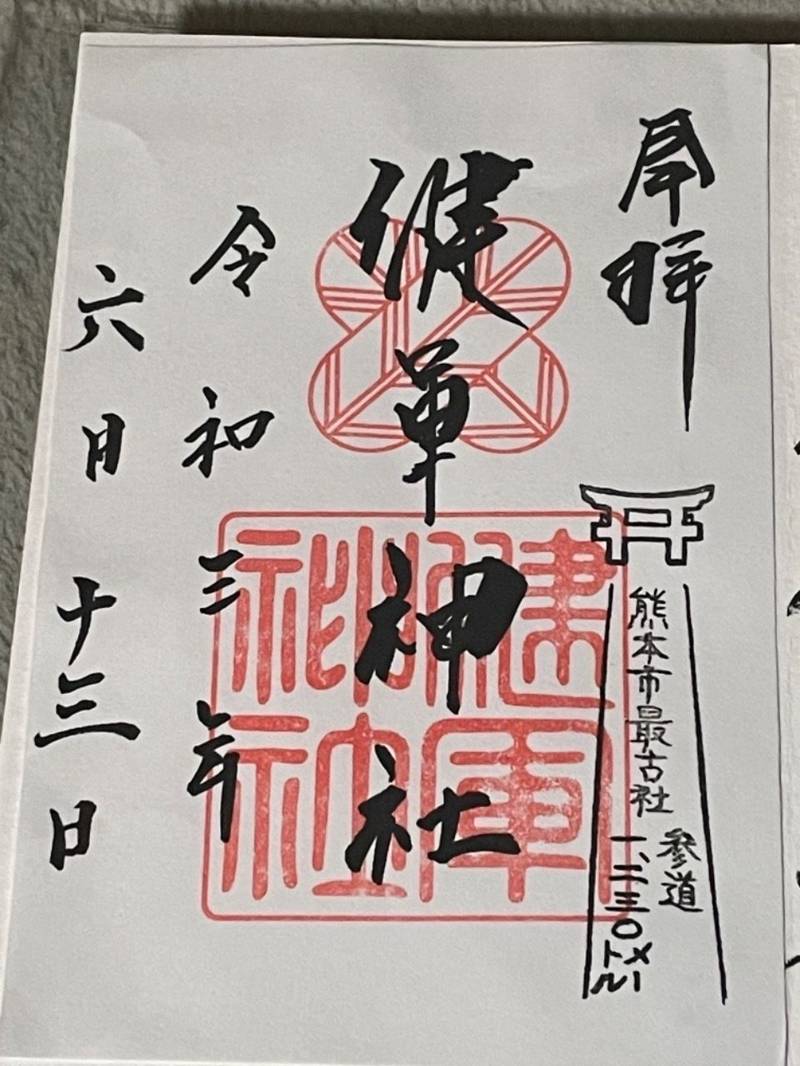 奉拝
熊本市最古社
参道
一、二三〇メートル
健軍神社
健軍神社
令和三年
六月十三日